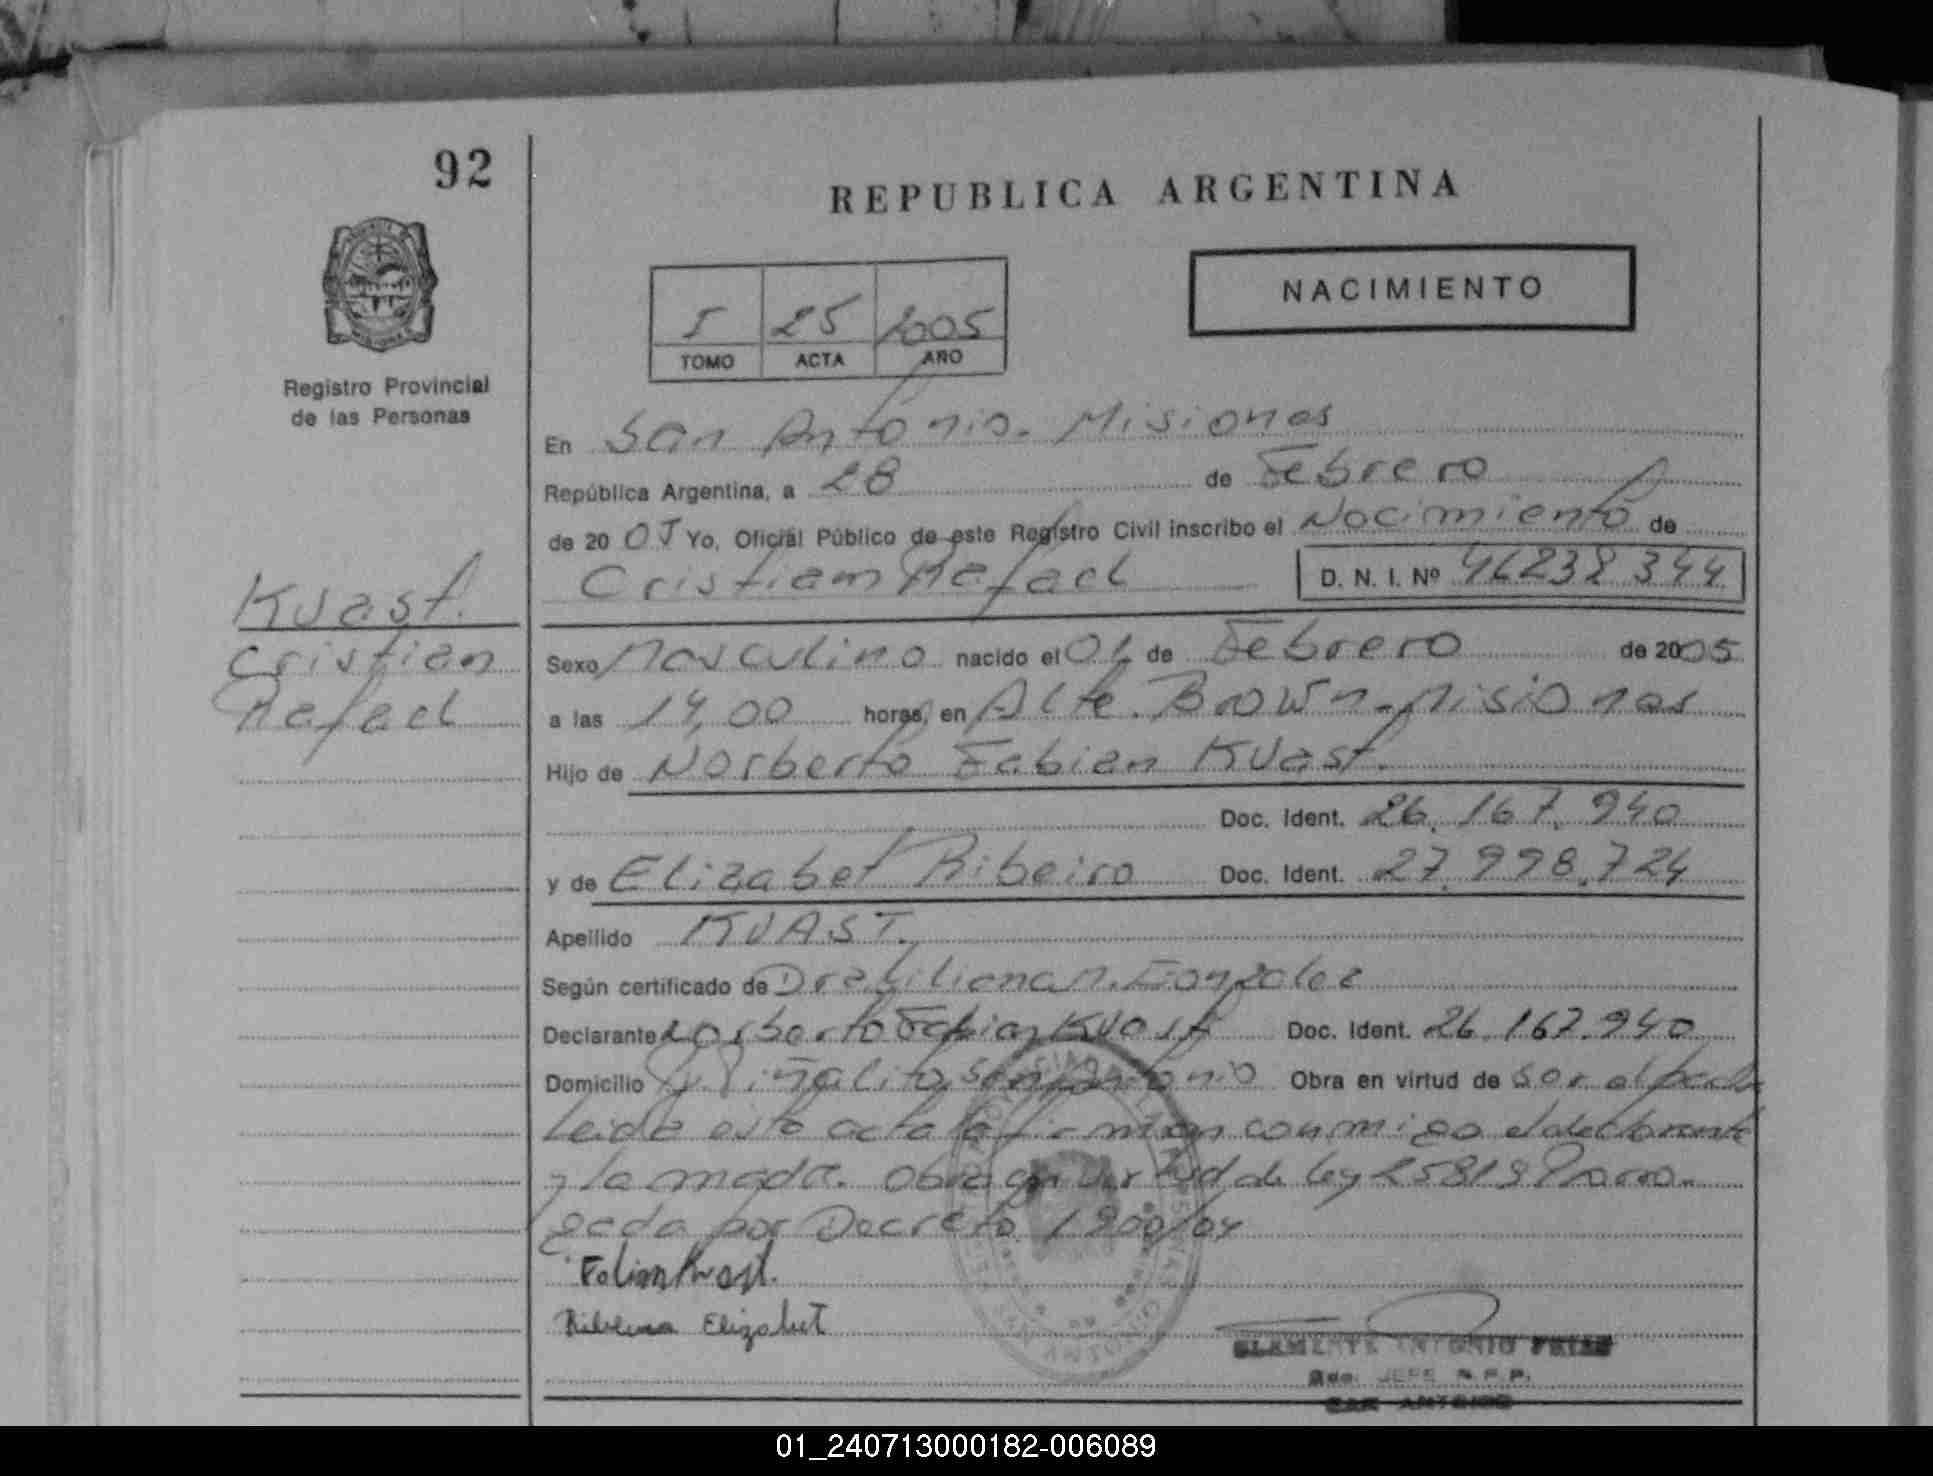 92
REPUBLICA ARGENTINA
NACIMIENTO
I 25 2005
TOMO ACTA AÑO
Registro Provincial
de las Personas
En San Antonio. Misiones
República Argentina, a 28 de Febrero
de 20 05 Yo, Oficial Público de este Registro Civil inscribo el Nacimiento de
Cristian Rafael D. N. I. Nº 46238344
Kuast.
Cristian
Rafael
Sexo Masculino nacido el 01 de Febrero de 2005
a las 14,00 horas, en Alte. Brown - Misiones
Hijo de Norberto Fabian Kuast.
Doc. Ident. 26.167.940
y de Elizabet Ribeiro Doc. Ident. 27.998.724
Apellido KUAST.
Según certificado de Dra. Liliana N. Gonzalez
Declarante Norberto Fabian Kuast Doc. Ident. 26.167.940
Domicilio Piñalito, San Antonio Obra en virtud de ser el padre
Leida esta acta la firman conmigo el declarante
y la madre. Obra en virtud de ley 25819 Prorro-
gada por Decreto 1900/04
Fabian Kuast.
Ribeiro Elizabet
CLEMENTE ANTONIO FRIAS
JEFE R.P.P.
SAN ANTONIO
01_240713000182-006089